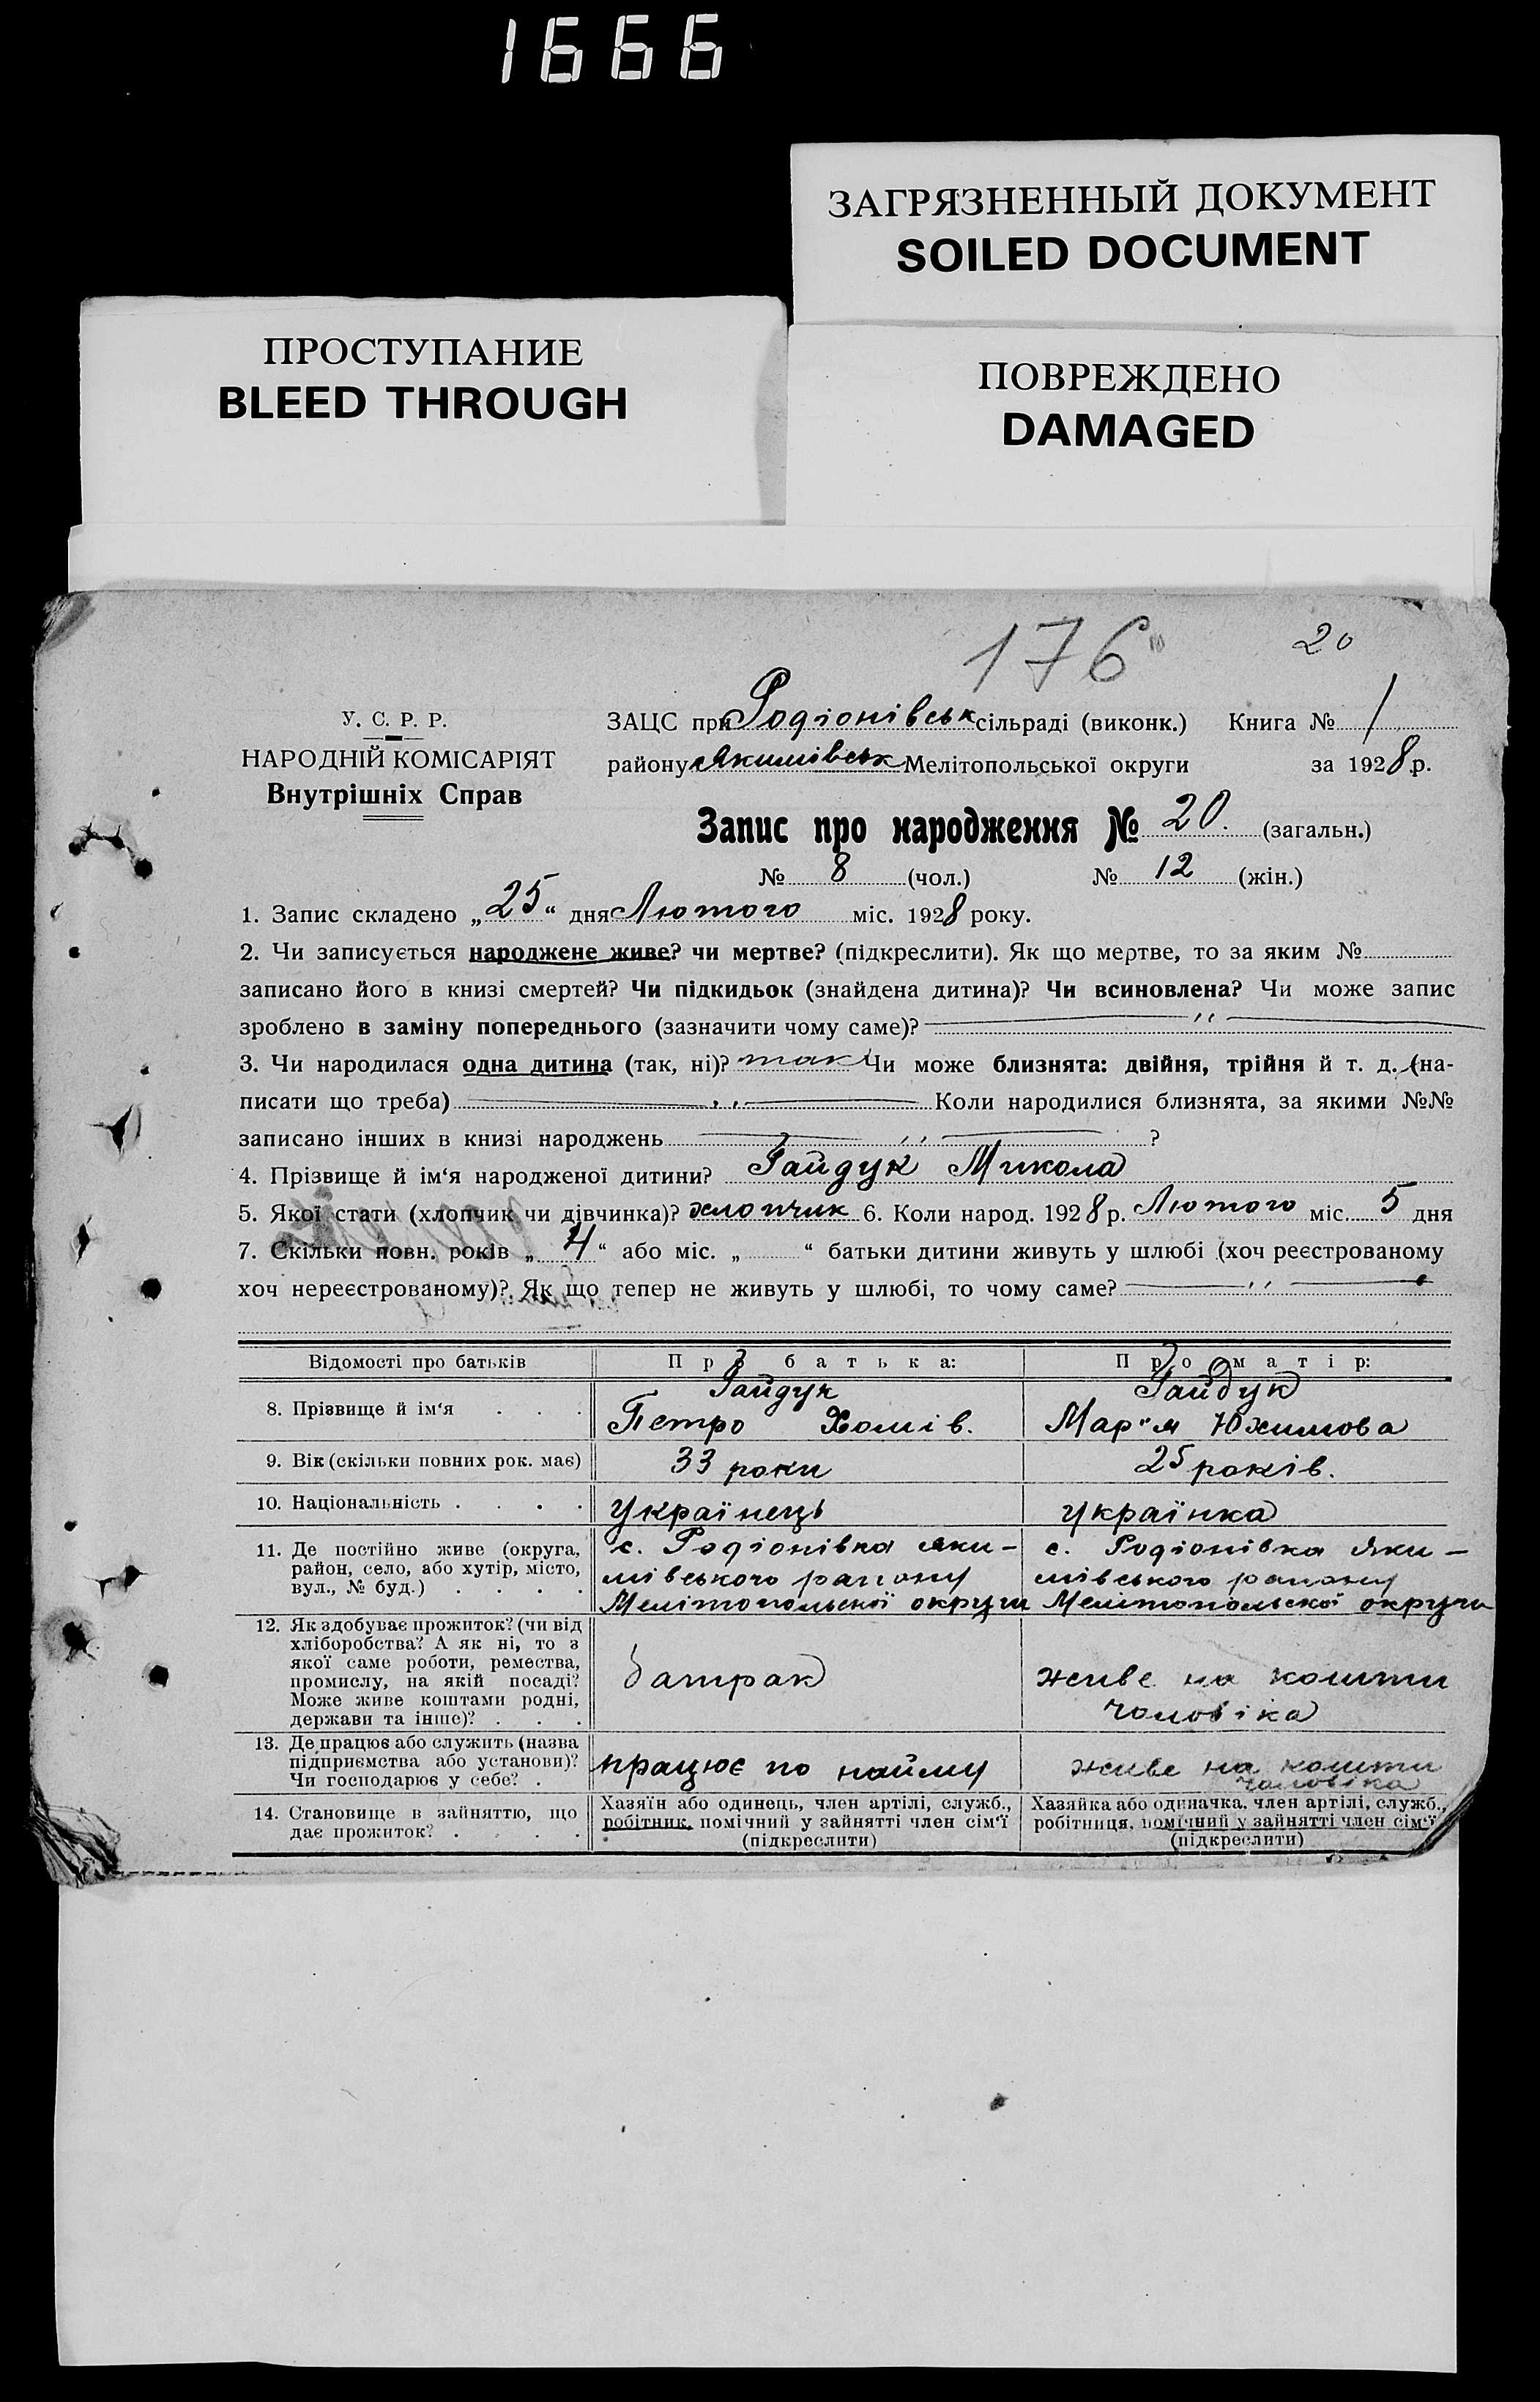 1666
ЗАГРЯЗНЕННЫЙ ДОКУМЕНТ
SOILED DOCUMENT
ПРОСТУПАНИЕ
BLEED THROUGH
ПОВРЕЖДЕНО
DAMAGED
176
20
У. С. Р. Р.
НАРОДНІЙ КОМІСАРІЯТ
Внутрішніх Справ
ЗАЦС при Родіонівськ сільраді (виконк.) Книга № 1
району Якимівськ Мелітопольської округи за 1928 р.
Запис про народження № 20. (загальн.)
№ 8 (чол.) № 12 (жін.)
1. Запис складено „25“ дня Лютого міс. 1928 року.
2. Чи записується народжене живе? чи мертве? (підкреслити). Як що мертве, то за яким №
записано його в книзі смертей? Чи підкидьок (знайдена дитина)? Чи всиновлена? Чи може запис
зроблено в заміну попереднього (зазначити чому саме)? — „ —
3. Чи народилася одна дитина (так, ні)? так Чи може близнята: двійня, трійня й т. д. (на-
писати що треба) — „ — Коли народилися близнята, за якими №№
записано інших в книзі народжень — „ — ?
4. Прізвище й ім‘я народженої дитини? Гайдук Микола
5. Якої стати (хлопчик чи дівчинка)? хлопчик 6. Коли народ. 1928 р. Лютого міс. 5 дня
7. Скільки повн. років „ 4 “ або міс. „ “ батьки дитини живуть у шлюбі (хоч реєстрованому
хоч нереєстрованому)? Як що тепер не живуть у шлюбі, то чому саме? — „ —
Відомості про батьків
Про батька:
Про матір:
8. Прізвище й ім‘я . . .
Гайдук
Петро Хомів.
Гайдук
Мар"я Юхимова
9. Вік (скільки повних рок. має)
33 роки
25 років.
10. Національність . . . .
Українець
українка
11. Де постійно живе (округа,
район, село, або хутір, місто,
вул., № буд.) . . . .
с. Родіонівка Яки-
мівського району
Мелітопольскої округи
с. Родіонівка Яки-
мівського району
Мелітопольскої округи
12. Як здобуває прожиток? (чи від
хліборобства? А як ні, то з
якої саме роботи, ремества,
промислу, на якій посаді?
Може живе коштами родні,
держави та інше)? . . .
батрак
живе на кошти
чоловіка
13. Де працює або служить (назва
підприємства або установи)?
Чи господарює у себе? .
працює по найму
живе на кошти
чоловіка
14. Становище в зайняттю, що
дає прожиток? . . . .
Хазяїн або одинець, член артілі, служб.,
робітник, помічний у зайнятті член сім‘ї
(підкреслити)
Хазяйка або одиначка, член артілі, служб.,
робітниця, помічний у зайнятті член сім‘ї
(підкреслити)